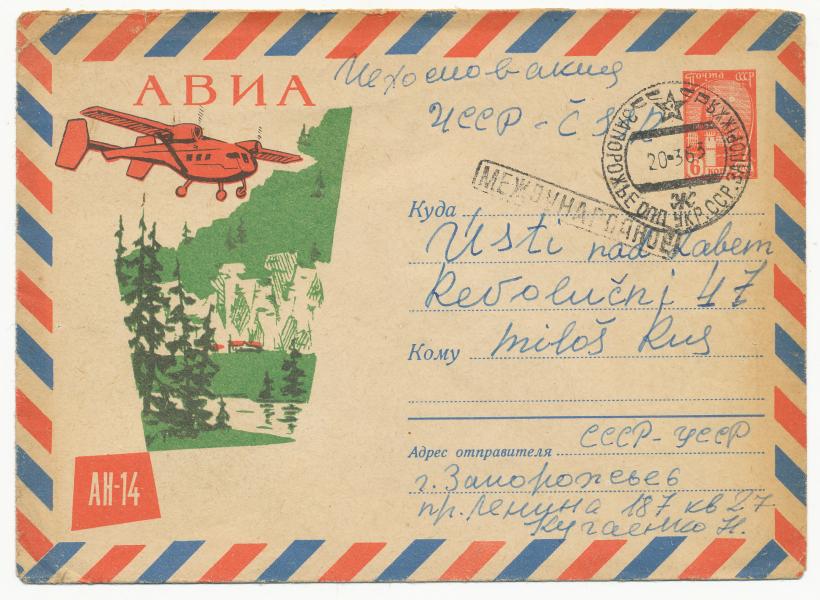 АВИА
Чехословакия
ЧССР - ČSSR
Почта СССР
6
коп
ЗАПОРОЖЬЕ ОПП УКР.ССР
20-363
Ж
МЕЖДУНАРОДНОЕ
Куда
Ústi nad Labem
Revolučni 47
Кому Miloš Rus
Адрес отправителя СССР-УССР
г. Запорожье 6
пр. Ленина 187 кв 27
Кугаенко Н.
АН-14